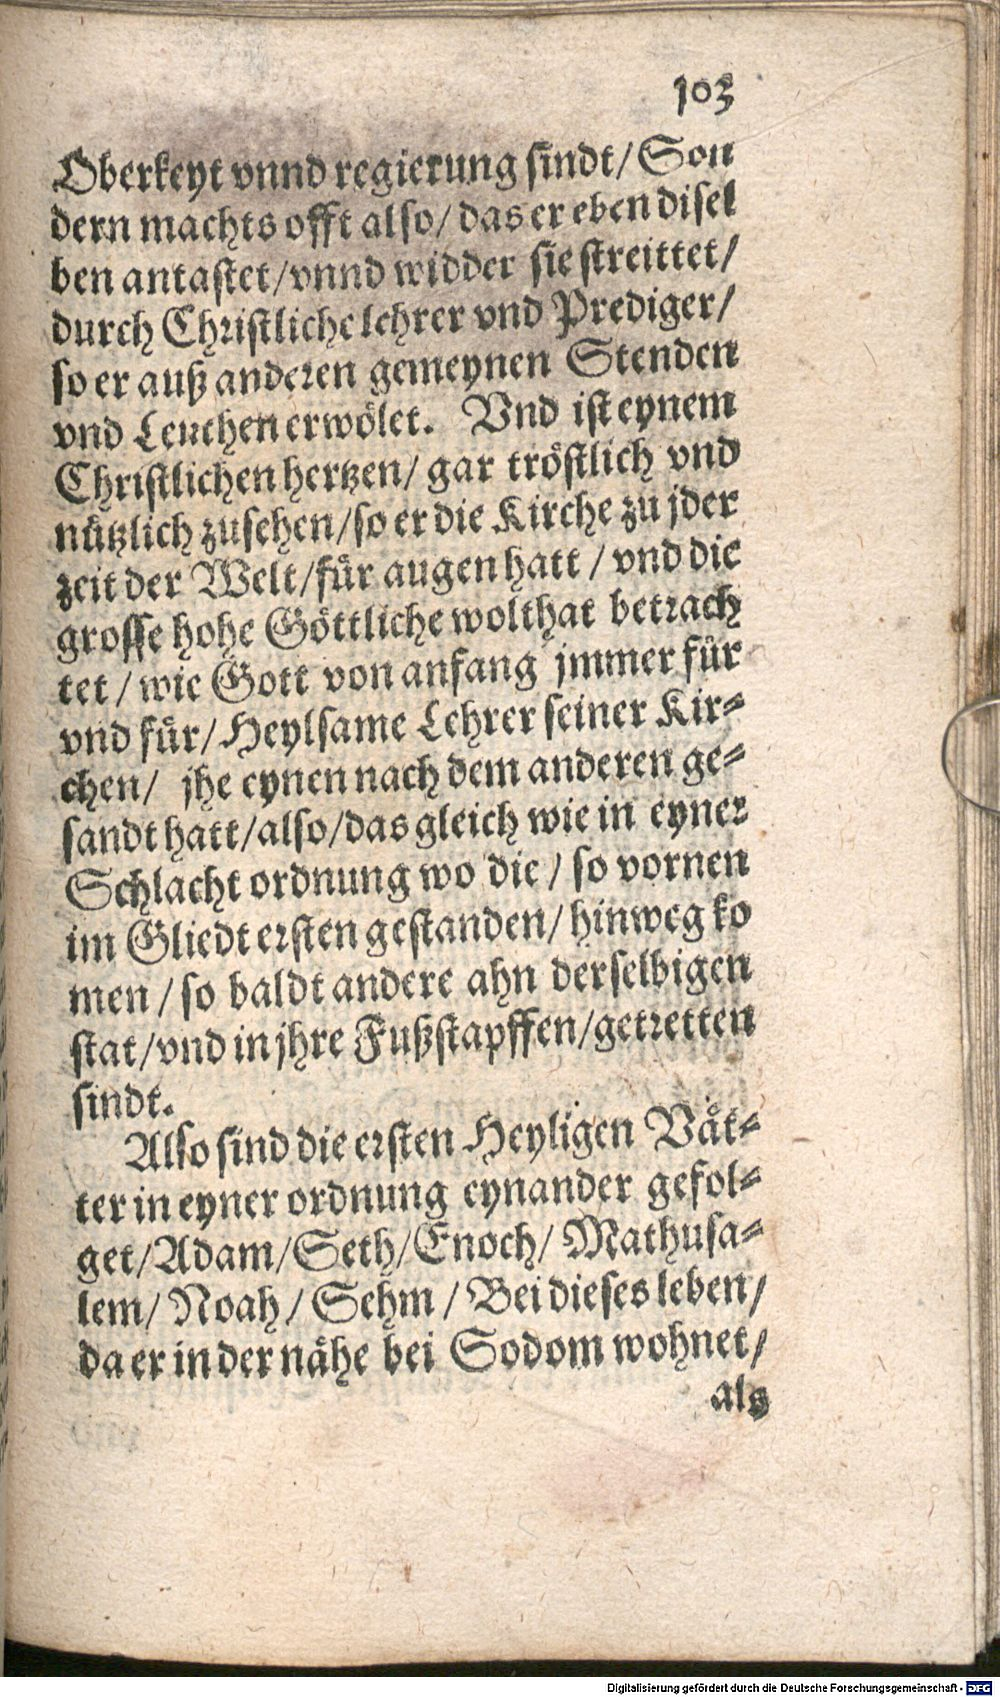 103
Oberkeyt vnnd regierung sindt/ Son
dern machts offt also/ das er eben disel
ben antastet/ vnnd widder sie streittet/
durch Christliche lehrer vnd Prediger/
so er auß anderen gemeynen Stenden
vnd Leuthen erwölet. Vnd ist eynem
Christlichen hertzen/ gar tröstlich vnd
nützlich zusehen/ so er die Kirche zu jder
zeit der Welt/ für augen hatt / vnd die
grosse hohe Göttliche wolthat betrach
tet / wie Gott von anfang jmmer für
vnd für/ Heylsame Lehrer seiner Kir-
chen/ jhe eynen nach dem anderen ge-
sandt hatt/ also/ das gleich wie in eyner
Schlacht ordnung wo die / so vornen
im Gliedt ersten gestanden/ hinweg ko
men / so baldt andere ahn derselbigen
stat/ vnd in jhre Fußstapffen/ getretten
sindt.
Also sind die ersten Heyligen Vät-
ter in eyner ordnung eynander gefol-
get/ Adam/ Seth/ Enoch/ Mathusa-
lem/ Noah/ Sehm / Bei dieses leben/
da er in der nähe bei Sodom wohnet/
als
Digitalisierung gefördert durch die Deutsche Forschungsgemeinschaft - DFG